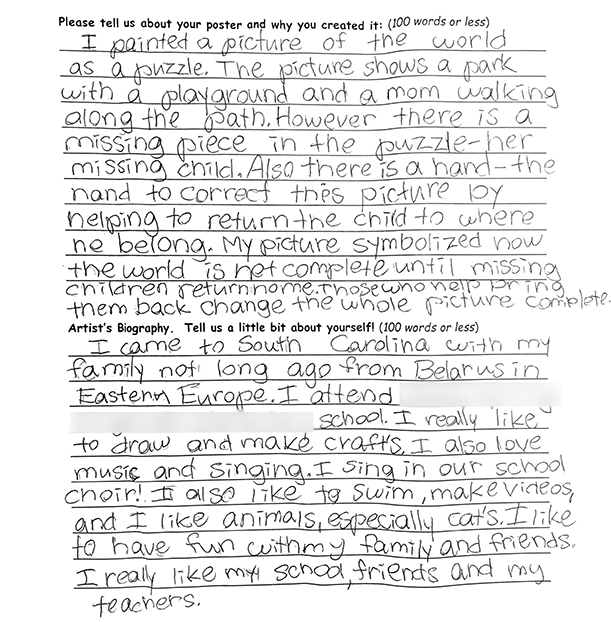 Please tell us about your poster and why you created it: (100 words or less)
I painted a picture of the world
as a puzzle. The picture shows a park
with a playground and a mom walking
along the path. However there is a
missing piece in the puzzle-her
missing child. Also there is a hand-the
hand to correct this picture by
helping to return the child to where
he belong. My picture symbolized how
the world is not complete until missing
children return home. Those who help bring
them back change the whole picture complete.
Artist's Biography. Tell us a little bit about yourself! (100 words or less)
I came to South Carolina with my
family not long ago from Belarus in
Eastern Europe. I attend
school. I really like
to draw and make crafts. I also love
music and singing. I sing in our school
choir! I also like to swim, make videos,
and I like animals, especially cat's. I like
to have fun with my family and friends.
I really like my school, friends and my
teachers.